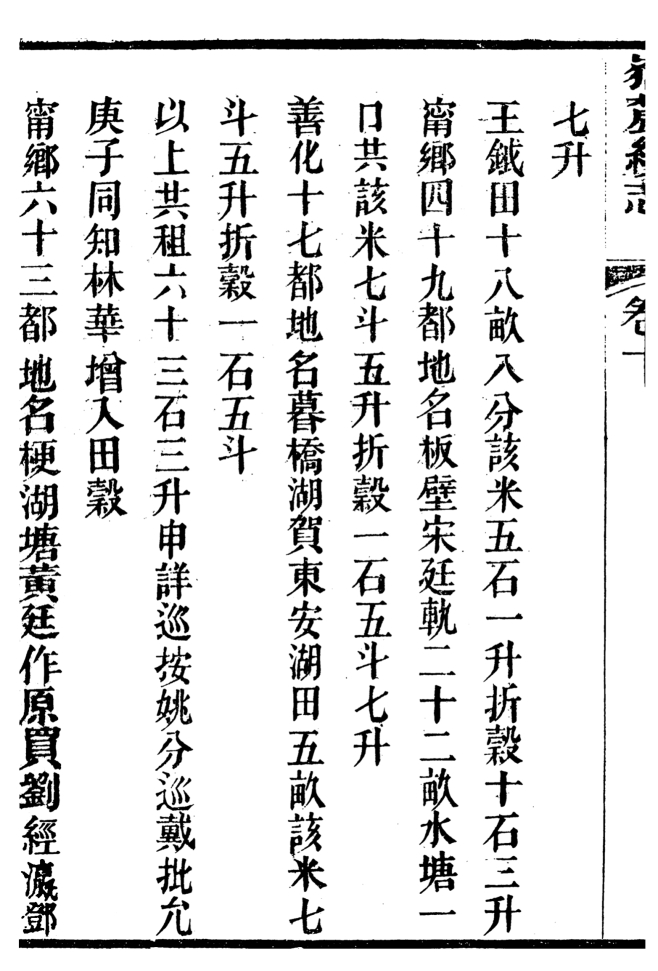 七升
王鉞田十八畝八分該米五石一升折穀十石三升
甯鄉四十九都地名板壁宋廷軌二十二畝水塘一
口共該米七斗五升折穀一石五斗七升
善化十七都地名暮橋湖賀東安湖田五畝該米七
斗五升折穀一石五斗
以上共租六十三石三升申詳巡按姚分巡戴批允
庚子同知林華增入田穀
甯鄉六十三都地名梗湖塘黃廷作原買劉經瀛鄧